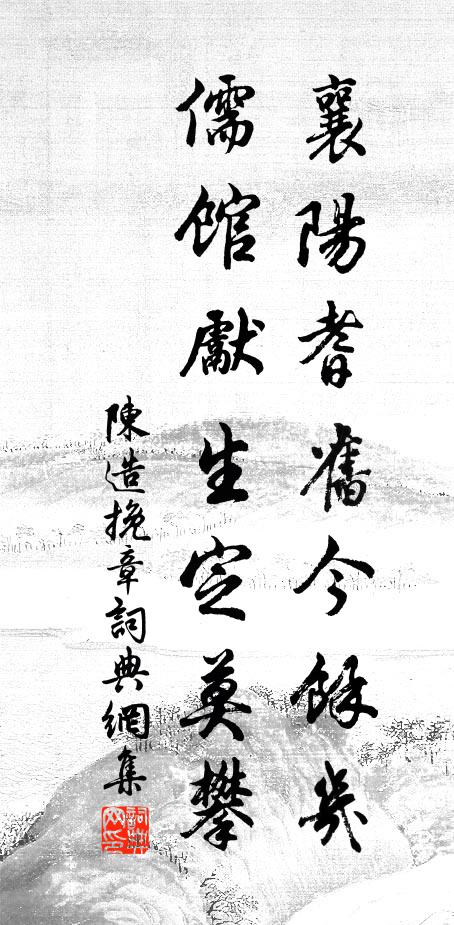 襄陽耆舊今餘幾
儒館獻生定莫攀
陳造挽章詞典網集